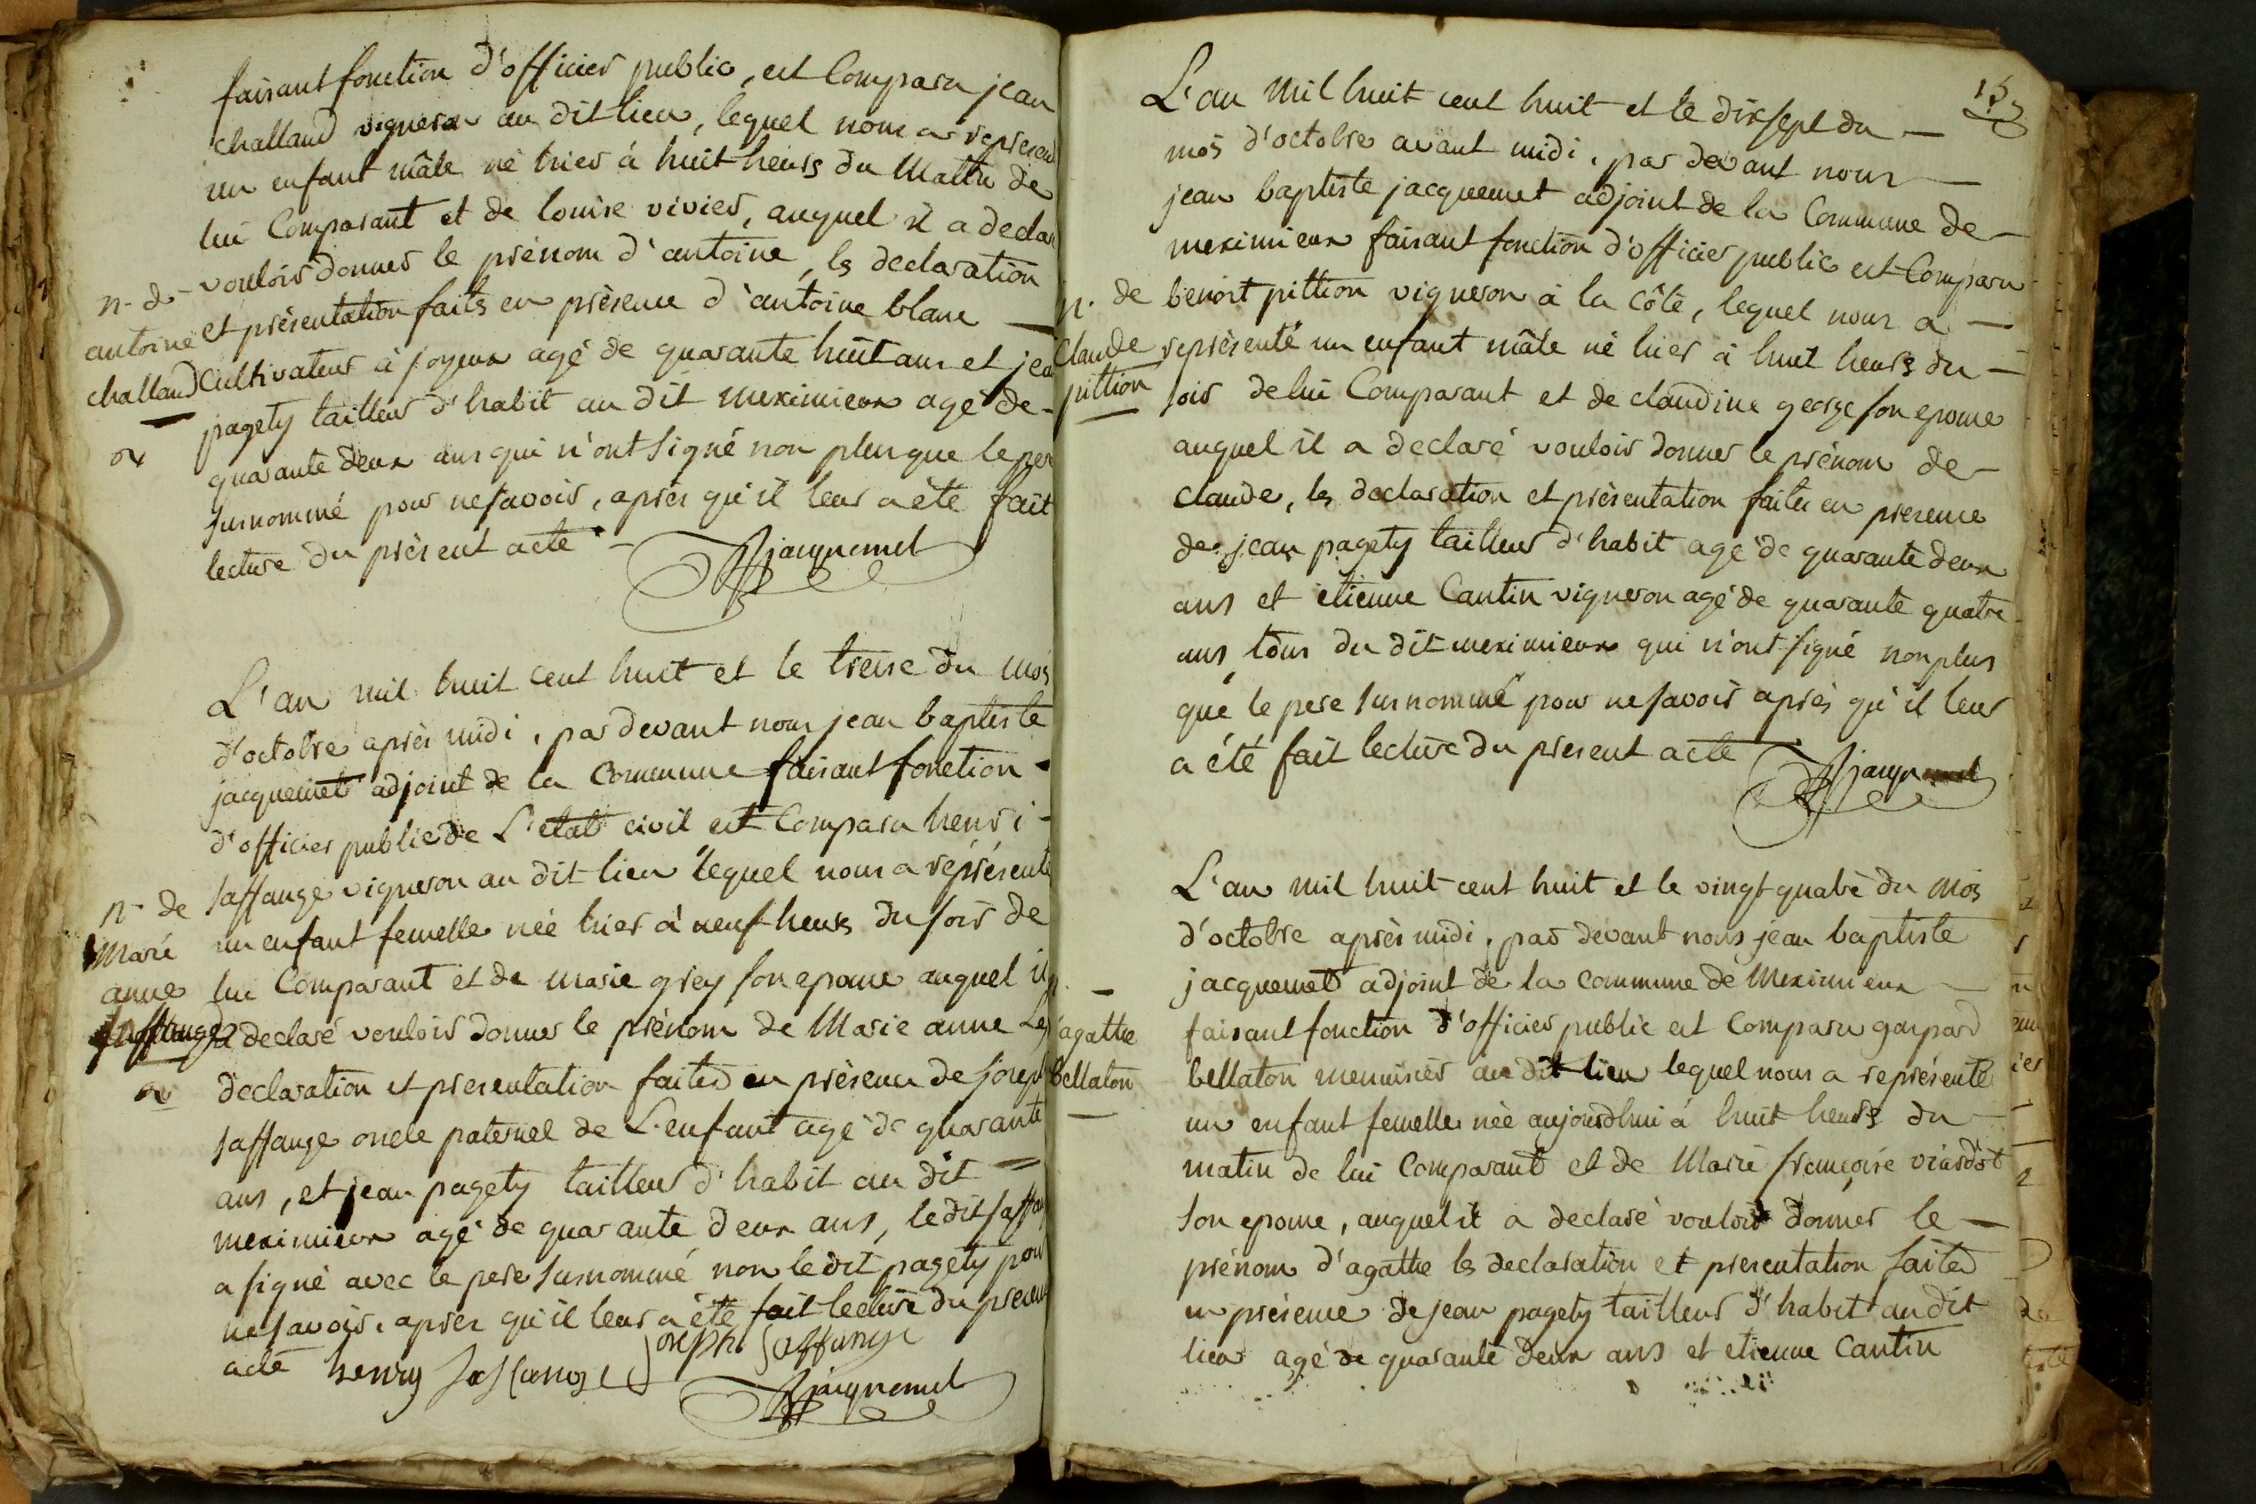 faisant fonction d'officier public, est Comparu jean
challand vigneron au dit lieu, lequel nous a represen
un enfant mâle né hier à huit heurs du Matin de
lui Comparant et de louise vivier, auquel il a declar
vouloir donner le prénom d'antoine, ls declaration
n. de
antoine
challand
et présentation faits en présence d'antoine blanc
Cultivateur à joyeux agé de quarante huit ans et jea
pagety tailleur d'habit au dit meximieux agé de
quarante deux ans qui n'ont signé non plus que le per
surnommé pour ne savoir, après qu'il leur a été fait
lecture du présent acte
JBjacquemet
L'an mil huit cent huit et le treise du mois
d'octobre après midi, par devant nous jean baptiste
jacquemet adjoint de la Commune faisant fonction
d'officier public de L'état civil est Comparu henri
saffange vigneron au dit lieu lequel nous a réprésenté
n. de
Marie
anne
saffange
un enfant femelle née hier à neuf heurs du soir de
lui Comparant et de marie grey son epouse auquel il
a declaré vouloir donner le prénom de Marie anne Les
declaration et presentation faites en présence de joseph
saffange oncle paternel de L'enfant agé de quarante
ans, et jean pagety tailleur d'habit au dit
meximieux agé de quarante deux ans, le dit saffan
a signé avec le pere surnommé non le dit pagety pour
ne savoir, après qu'il leur a été fait lecture du present
acte henry saffange joseph saffange
JBjacquemet
153
L'an Mil huit cent huit et le dix sept du
mois d'octobre avant midi, par devant nous
jean baptiste jacquemet adjoint de la Commune de
meximieux faisant fonction d'officier public est Comparu
n. de
Claude
pittion
benoit pittion vigneron à la côte, lequel nous a
représenté un enfant mâle né hier à huit heurs du
soir de lui Comparant et de claudine george son epouse
auquel il a declaré vouloir donner le prénom de
claude, ls declaration et présentation faites en presence
de jean pagety tailleur d'habit agé de quarante deux
ans et etienne Cantin vigneron agé de quarante quatre
ans tous du dit meximieux qui n'ont signé non plus
que le pere surnommé pour ne savoir après qu'il leur
a été fait lecture du present acte
JBjacquemet
L'an mil huit cent huit et le vingt quatre du mois
d'octobre après midi, par devant nous jean baptiste
jacquemet adjoint de la commune de Meximieux
n.
agathe
bellaton
faisant fonction d'officier public est Comparu gaspard
bellaton menuisier au dit lieu lequel nous a représenté
un enfant femelle née aujourdhui à huit heurs du
matin de lui Comparant et de Marie françoise viardot
son epouse, auquel il a declaré vouloir donner le
prénom d'agathe ls declaration et presentation faites
en présence de jean pagety tailleur d'habit au dit
lieu agé de quarante deux ans et etienne Cantin